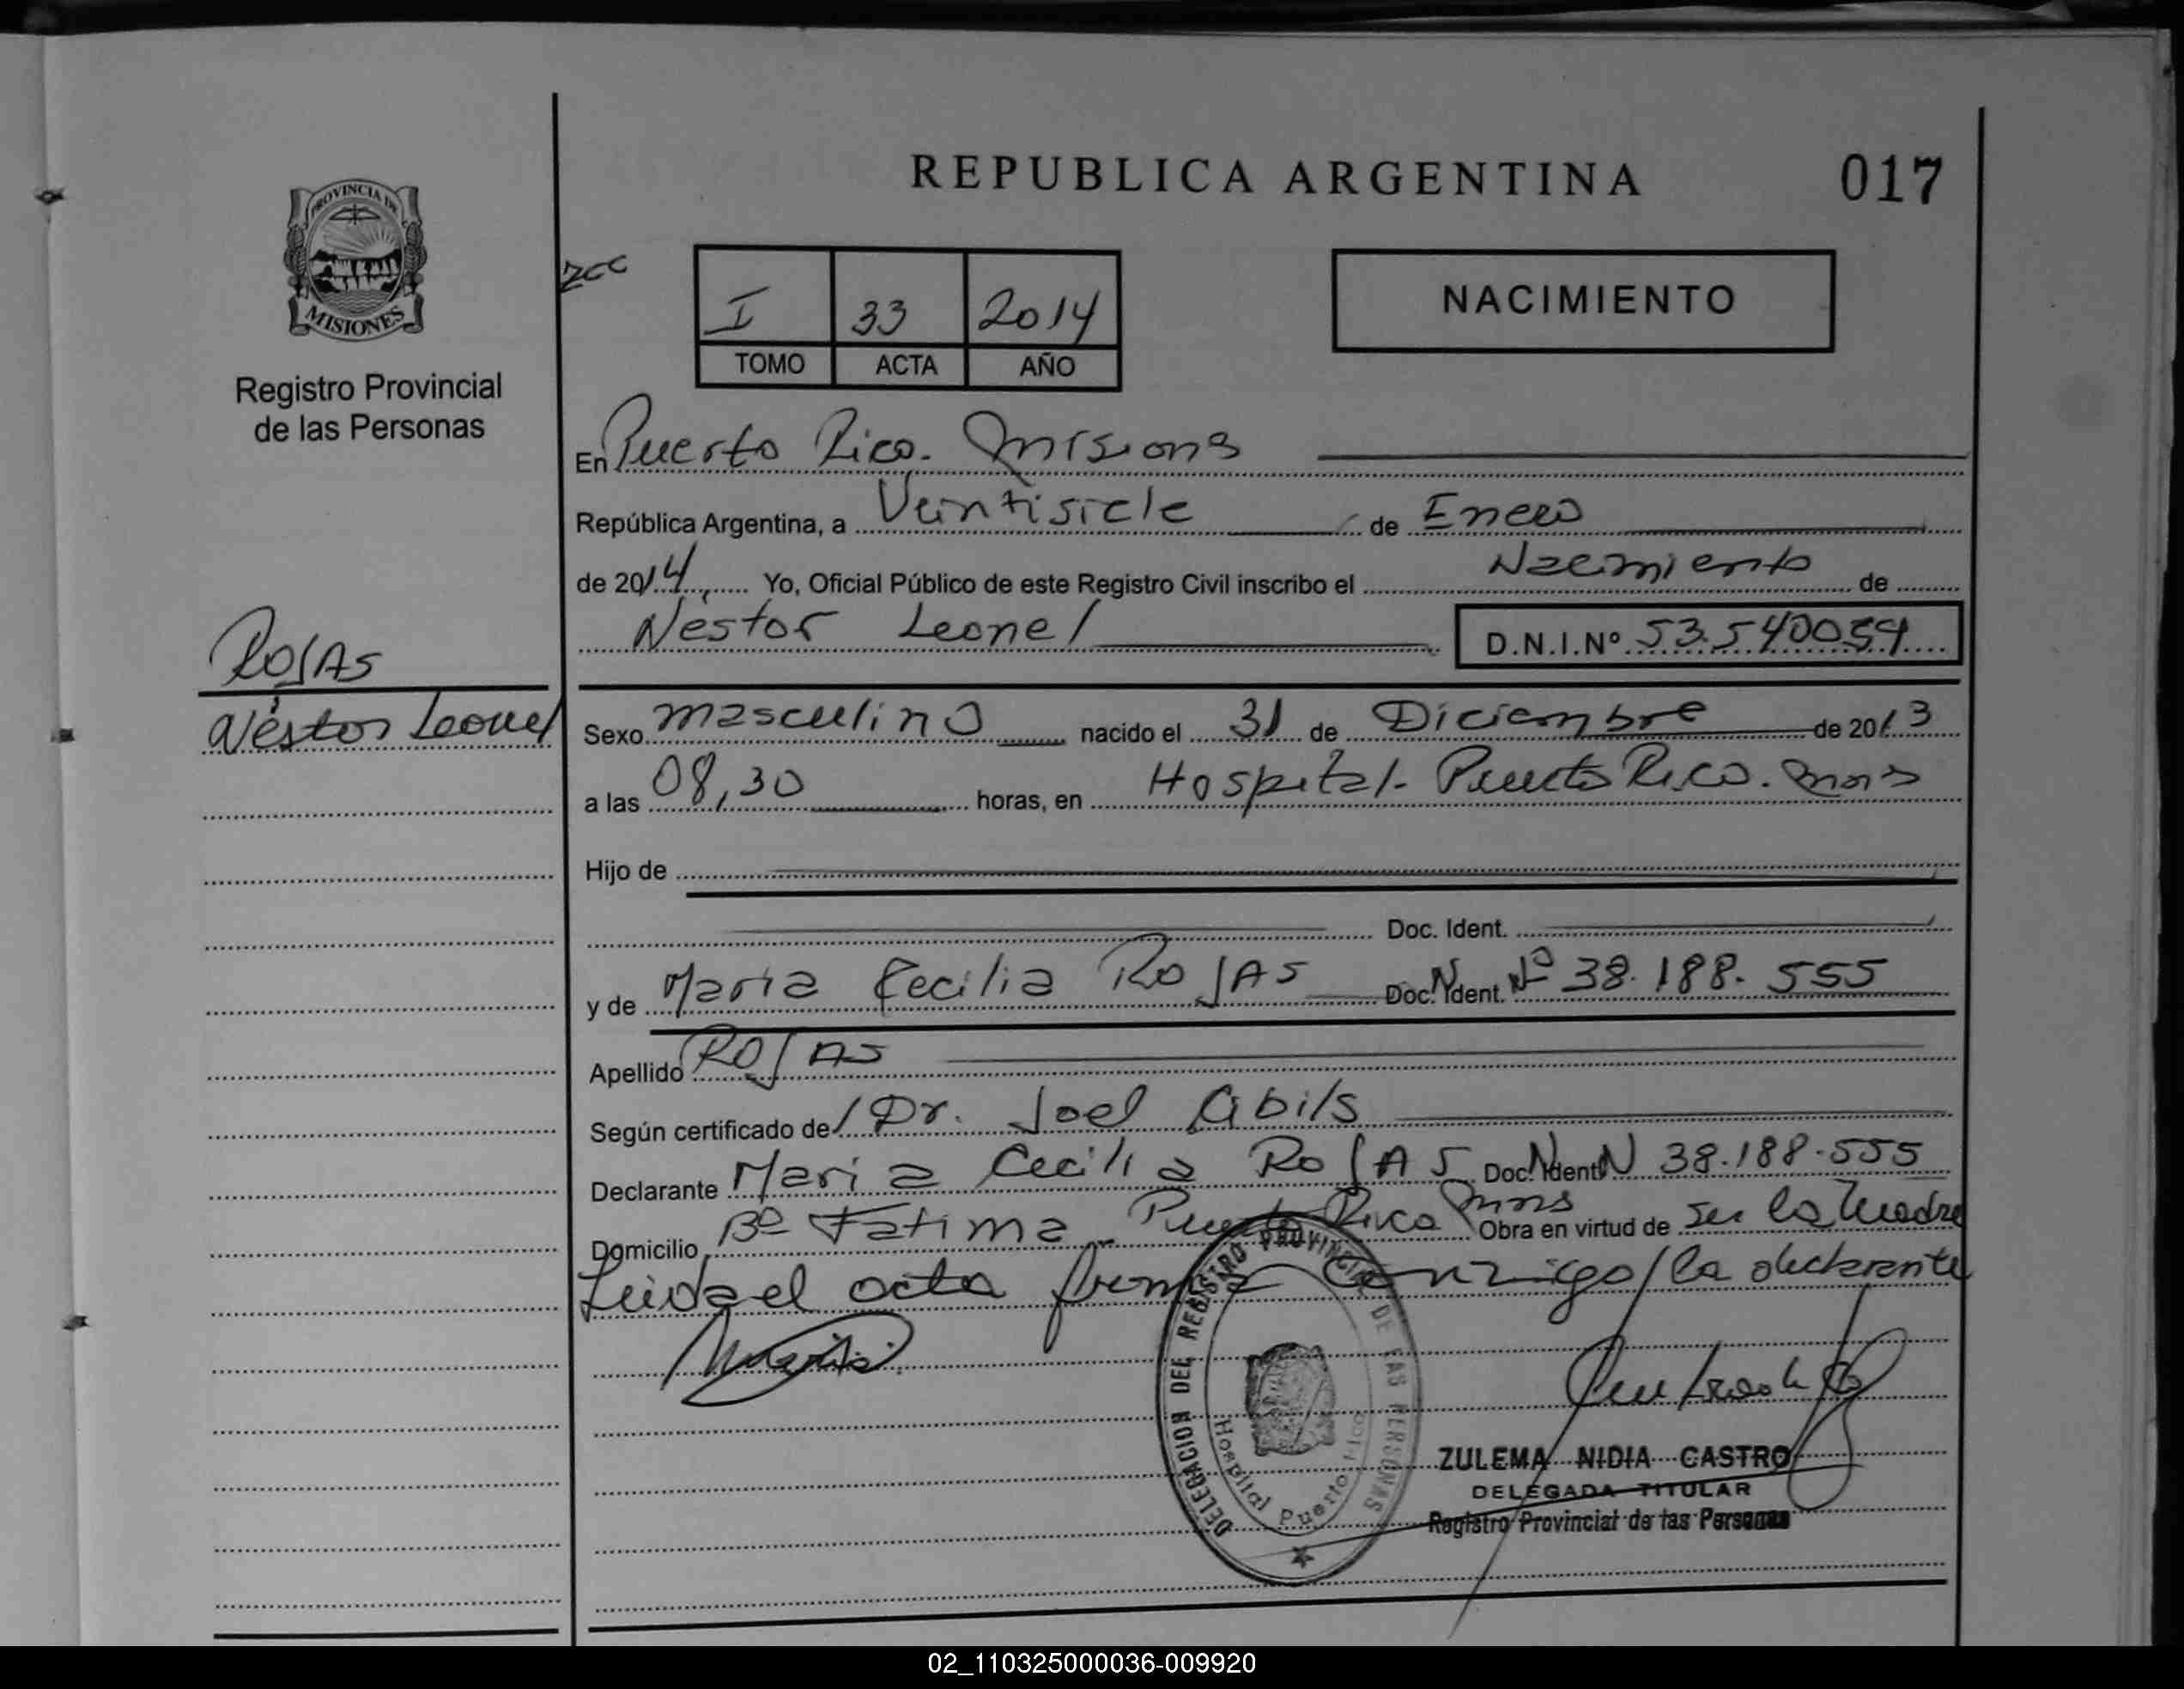 REPUBLICA ARGENTINA
017
PROVINCIA DE
MISIONES
Registro Provincial
de las Personas
zcc
I 33 2014
TOMO ACTA AÑO
NACIMIENTO
En Puerto Rico. Misions
República Argentina, a Veintisiete de Enero
de 2014 Yo, Oficial Público de este Registro Civil inscribo el Nacimiento de
Néstor Leonel D.N.I.Nº 53.540054
ROJAS
Néstor Leonel
Sexo masculino nacido el 31 de Diciembre de 2013
a las 08,30 horas, en Hospital- Puerto Rico. Mnes
Hijo de
Doc. Ident.
y de Maria Cecilia ROJAS Doc. Ident. Nº 38.188.555
Apellido ROJAS
Según certificado de Dr. Joel Abils
Declarante Maria Cecilia ROJAS Doc. Ident N 38.188.555
Domicilio Bº Fatima - Puerto Rico Mns Obra en virtud de ser la Madre
Leida el acta firma conmigo la declarante
DELEGACION DEL REGISTRO PROVINCIAL DE LAS PERSONAS
Hospital Puerto Rico
ZULEMA NIDIA CASTRO
DELEGADA TITULAR
Registro Provincial de las Personas
02_110325000036-009920